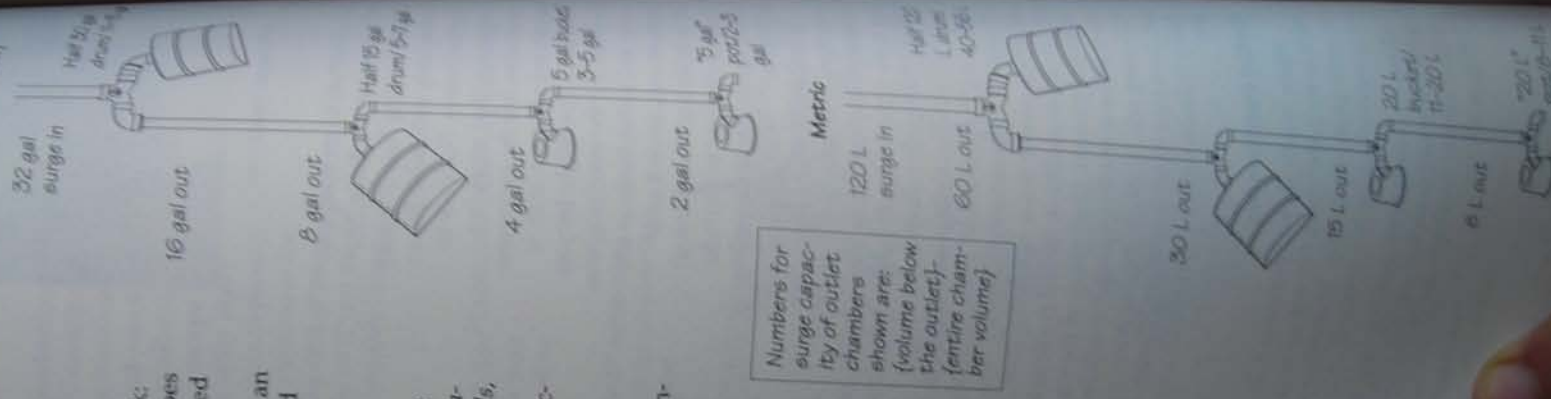 32 gal
surge in
Half 50 gal
drum/
16 gal out
8 gal out
Half 15 gal
drum/5-7 gal
4 gal out
5 gal bucket
3-5 gal
2 gal out
"5 gal"
pot/2-3
gal
Metric
120 L
surge in
60 L out
30 L out
15 L out
20 L
bucket/
11-20 L
L out
"20 L"
Numbers for
surge capac-
ity of outlet
chambers
shown are:
{volume below
the outlet}-
{entire cham-
ber volume}
an